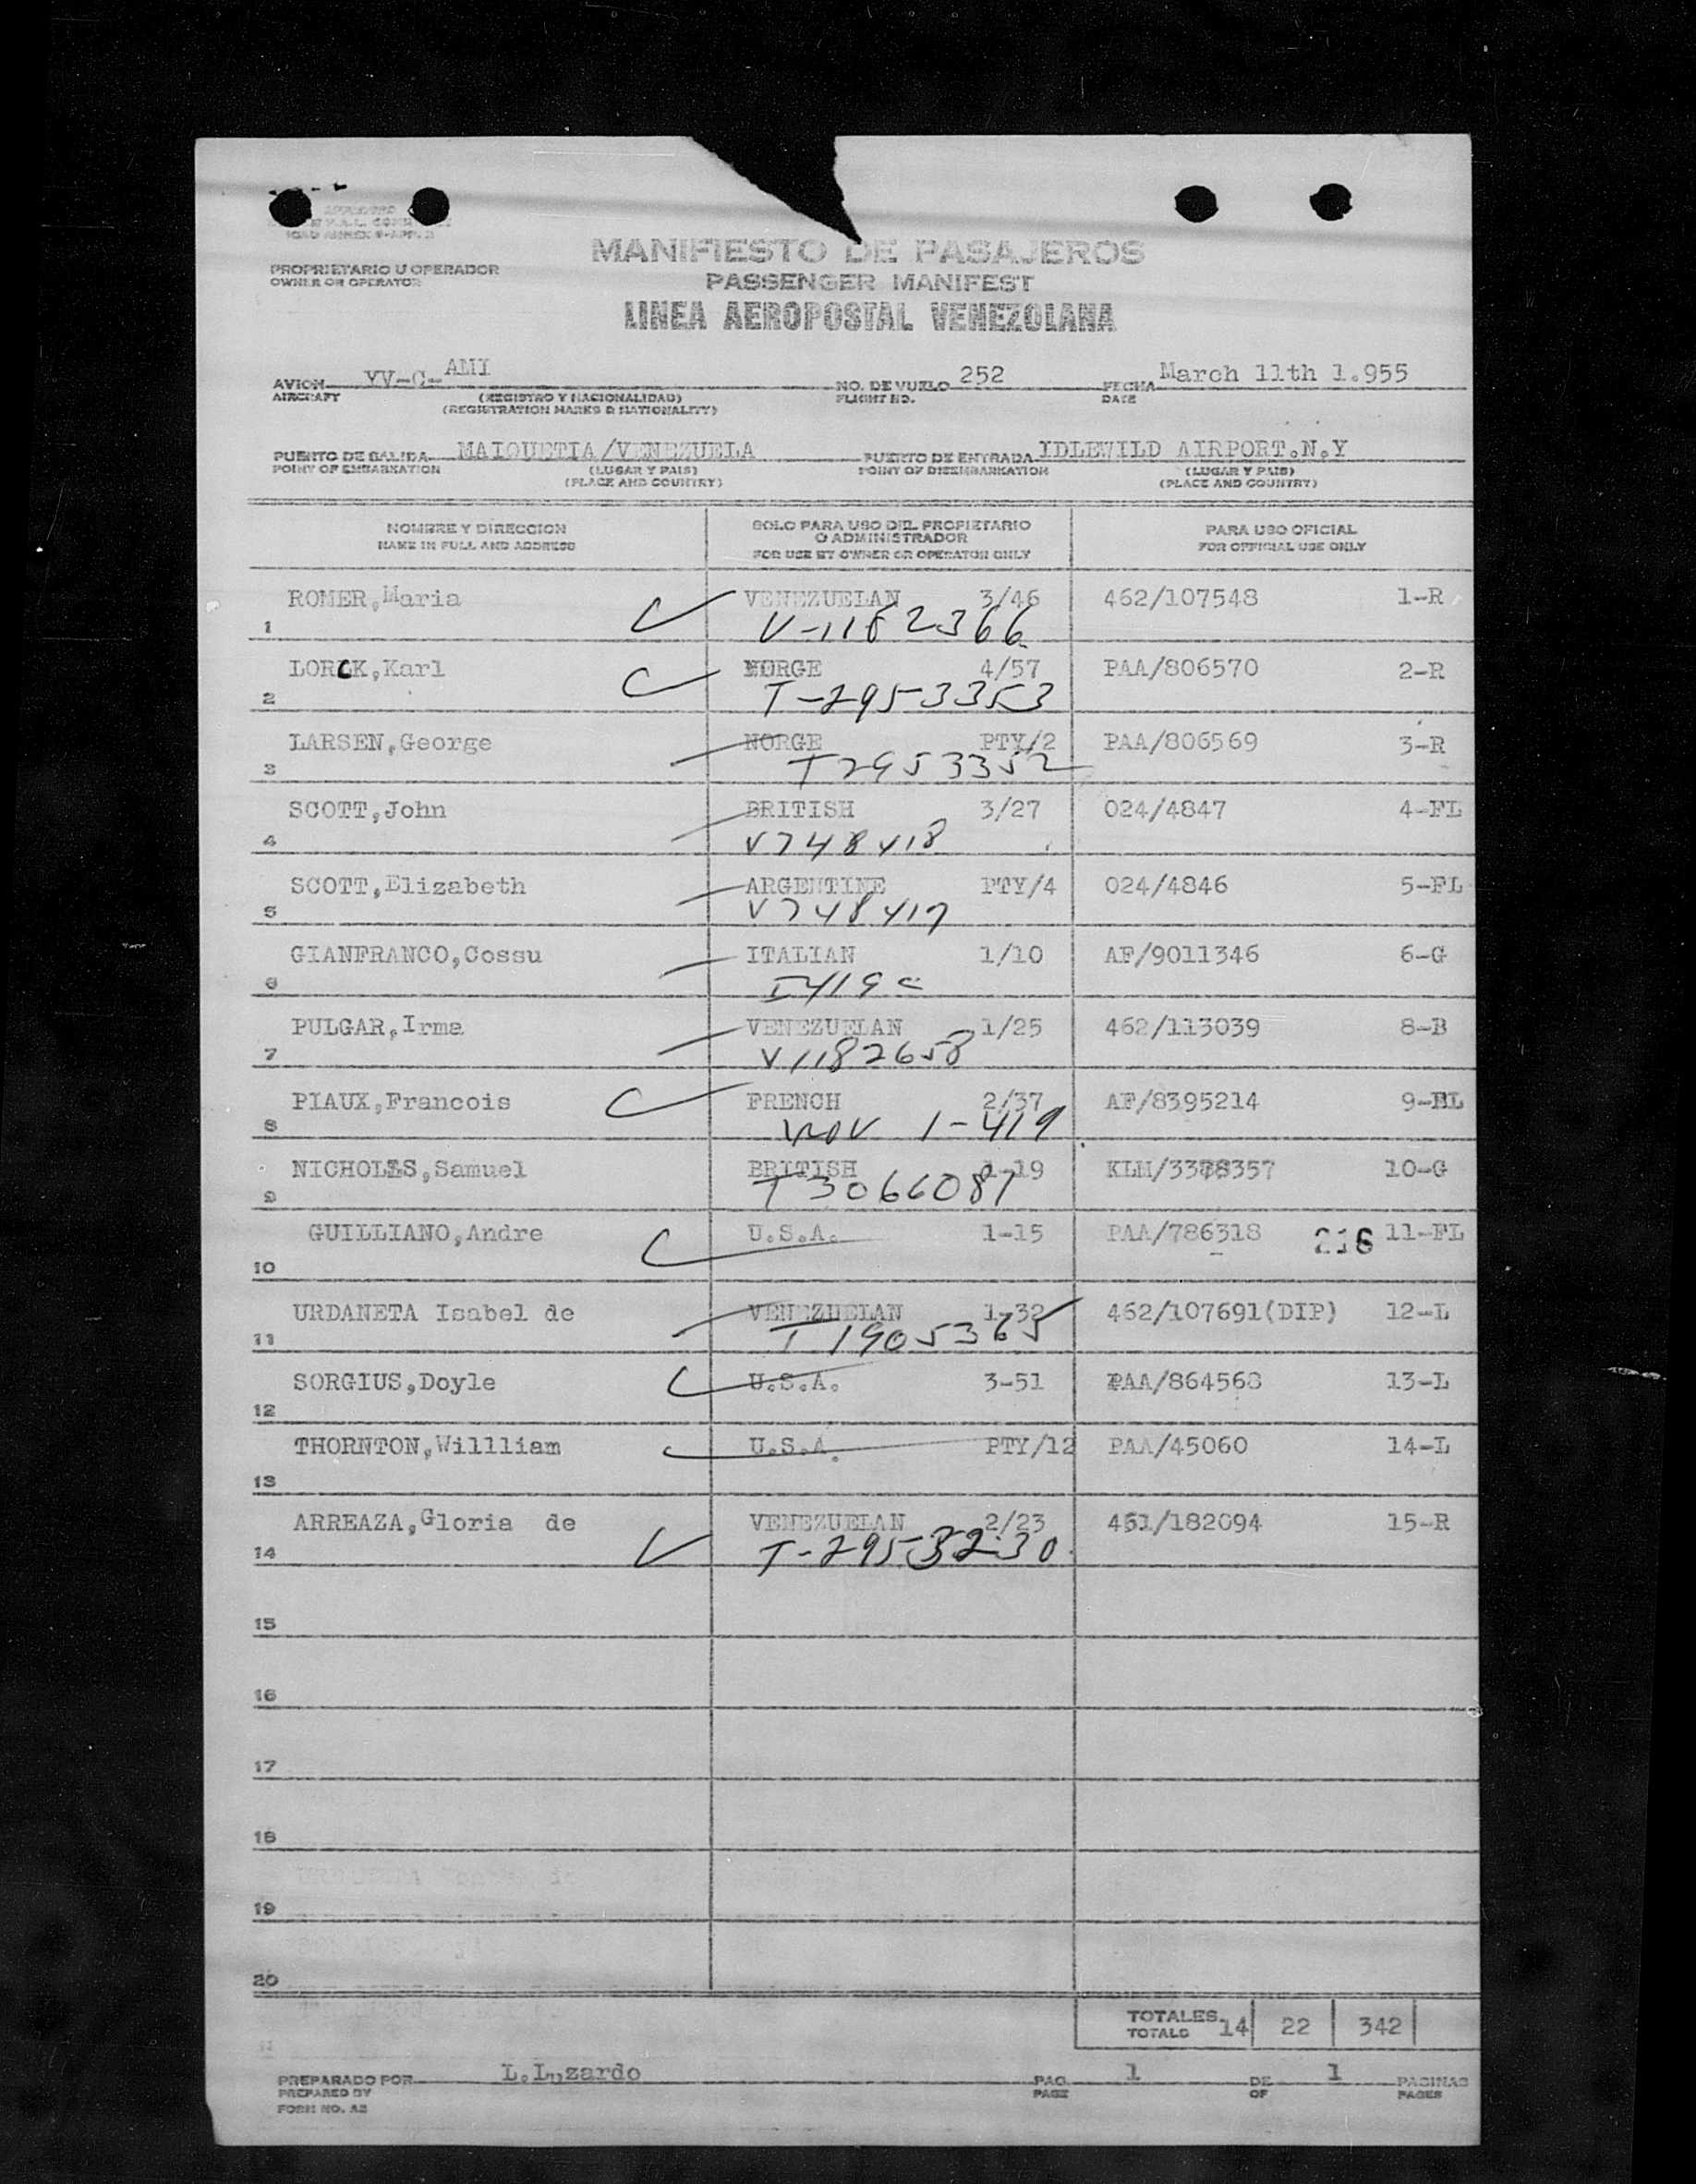 APPROVED
MANIFIESTO DE PASAJEROS
PROPRIETARIO U OPERADOR
OWNER OR OPERATOR
PASSENGER MANIFEST
LINEA AEROPOSTAL VENEZOLANA
AVION YV-C-AMI NO. DE VUELO 252 FECHA March 11th 1.955
AIRCRAFT (REGISTRO Y NACIONALIDAD) FLIGHT NO. DATE
(REGISTRATION MARKS & NATIONALITY)
PUERTO DE SALIDA MAIQUETIA/VENEZUELA PUERTO DE ENTRADA IDLEWILD AIRPORT.N.Y
POINT OF EMBARKATION (LUGAR Y PAIS) POINT OF DISEMBARKATION (LUGAR Y PAIS)
(PLACE AND COUNTRY) (PLACE AND COUNTRY)
NOMBRE Y DIRECCION SOLO PARA USO DEL PROPIETARIO O ADMINISTRADOR PARA USO OFICIAL
NAME IN FULL AND ADDRESS FOR USE BY OWNER OR OPERATOR ONLY FOR OFFICIAL USE ONLY
ROMER,Maria VENEZUELAN 3/46 462/107548 1-R
1 V-1182366
LORCK,Karl NORGE 4/57 PAA/806570 2-R
2 T-2953353
LARSEN,George NORGE PTY/2 PAA/806569 3-R
3 T2953352
SCOTT,John BRITISH 3/27 024/4847 4-FL
4 V748418
SCOTT,Elizabeth ARGENTINE PTY/4 024/4846 5-FL
5 V748417
GIANFRANCO,Cossu ITALIAN 1/10 AF/9011346 6-G
6
PULGAR,Irma VENEZUELAN 1/25 462/113039 8-B
7 V1182658
PIAUX,Francois FRENCH 2/37 AF/8395214 9-BL
8 1-419
NICHOLLS,Samuel BRITISH 1-19 KLM/3378357 10-G
9 T3066087
GUILLIANO,Andre U.S.A. 1-15 PAA/786318 216 11-FL
10
URDANETA Isabel de VENEZUELAN 1-32 462/107691(DIP) 12-L
11 T1905365
SORGIUS,Doyle U.S.A. 3-51 PAA/864568 13-L
12
THORNTON,Willliam U.S.A. PTY/12 PAA/45060 14-L
13
ARREAZA,Gloria de VENEZUELAN 2/23 461/182094 15-R
14 T-2953230
15
16
17
18
19
20
TOTALES 14 22 342
TOTALS
PREPARADO POR L.Luzardo PAG. 1 DE 1 PAGINAS
PREPARED BY PAGE OF PAGES
FORM NO. A2